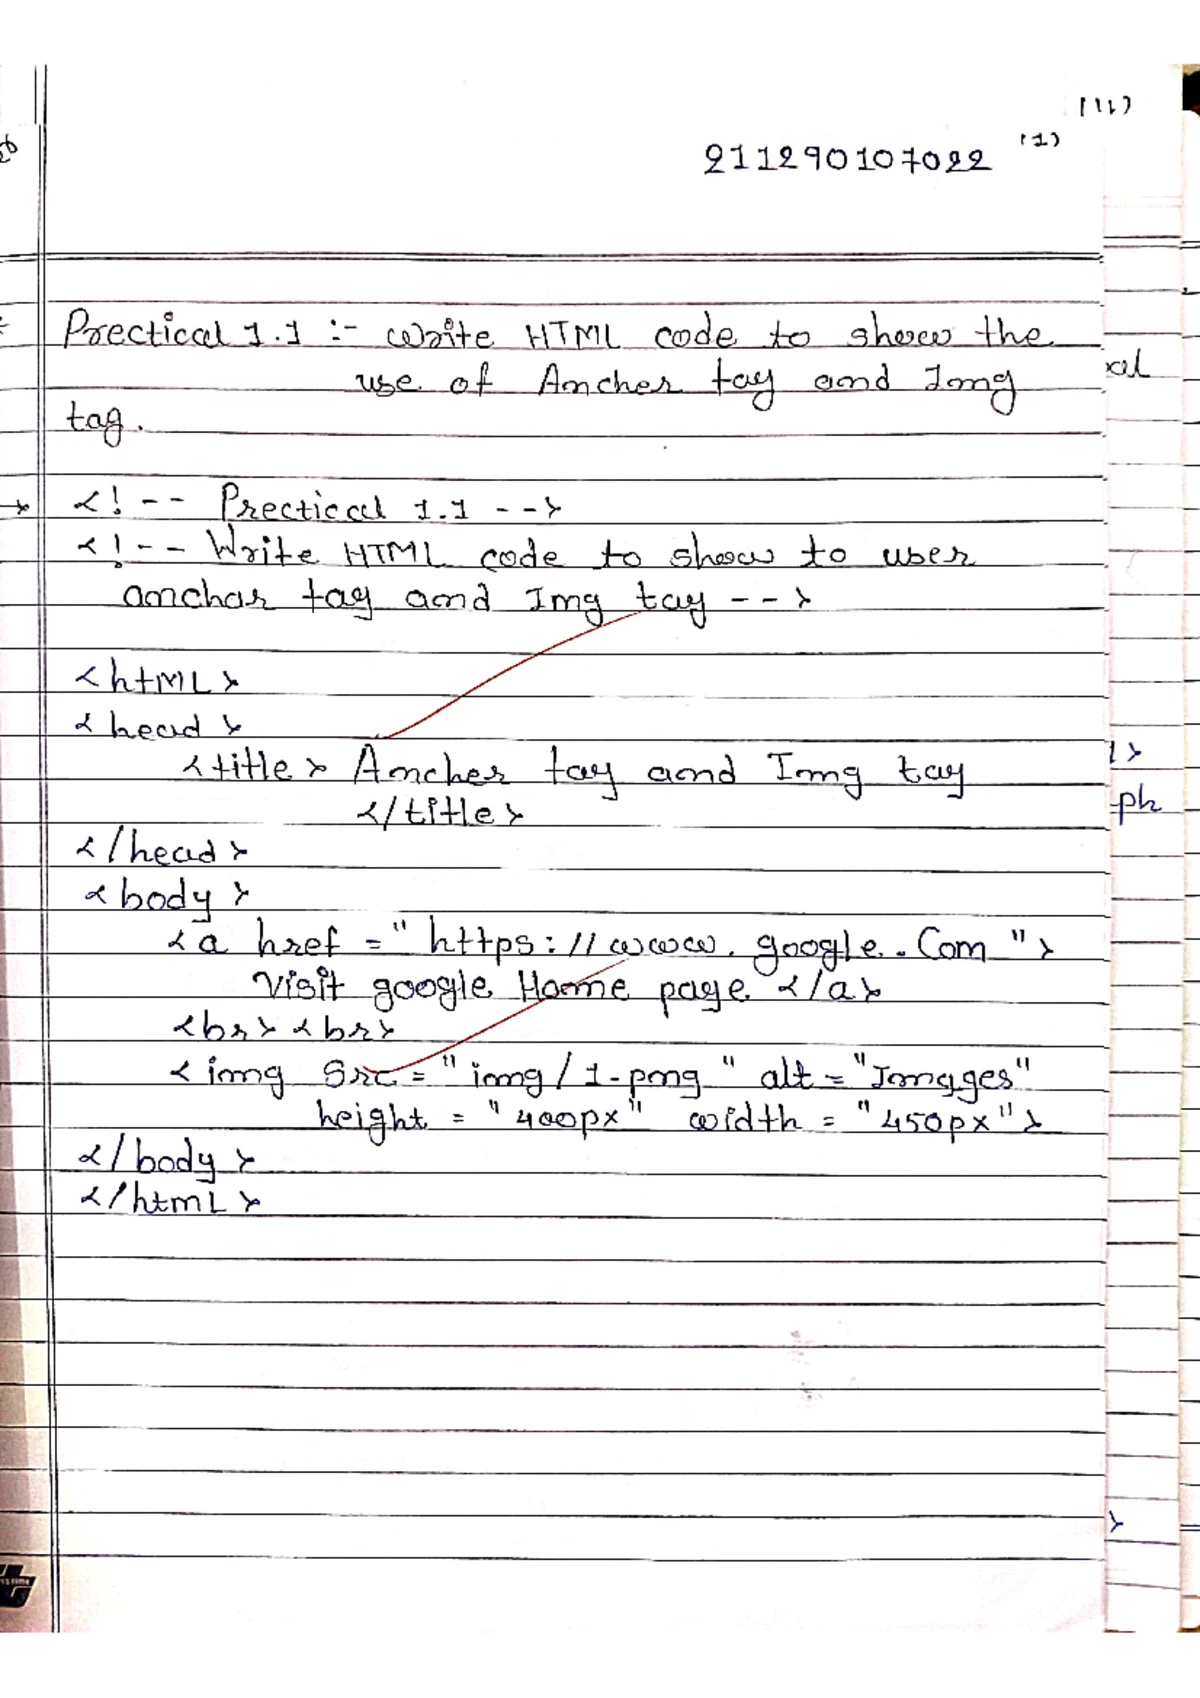 (11)
(1)
211290107022
Prectical 1.1 :- Write HTML code to show the
use of Ancher tag and Img
tag.
<!-- Prectical 1.1 -->
<!-- Write HTML code to show to user
anchar tag and Img tag -->
<htML>
<head>
<title> Ancher tag and Img tag
</title>
</head>
<body>
<a href = "https://www.google.Com">
Visit google Home page </a>
<br> <br>
<img Src = "img/1-png" alt = "Imagges"
height = "400px" width = "450px">
</body>
</htmL>